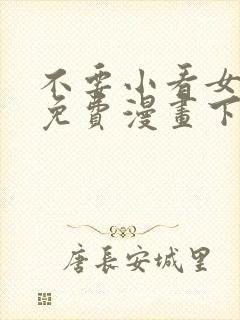 不要小看女
免費漫畫下
唐長安城里